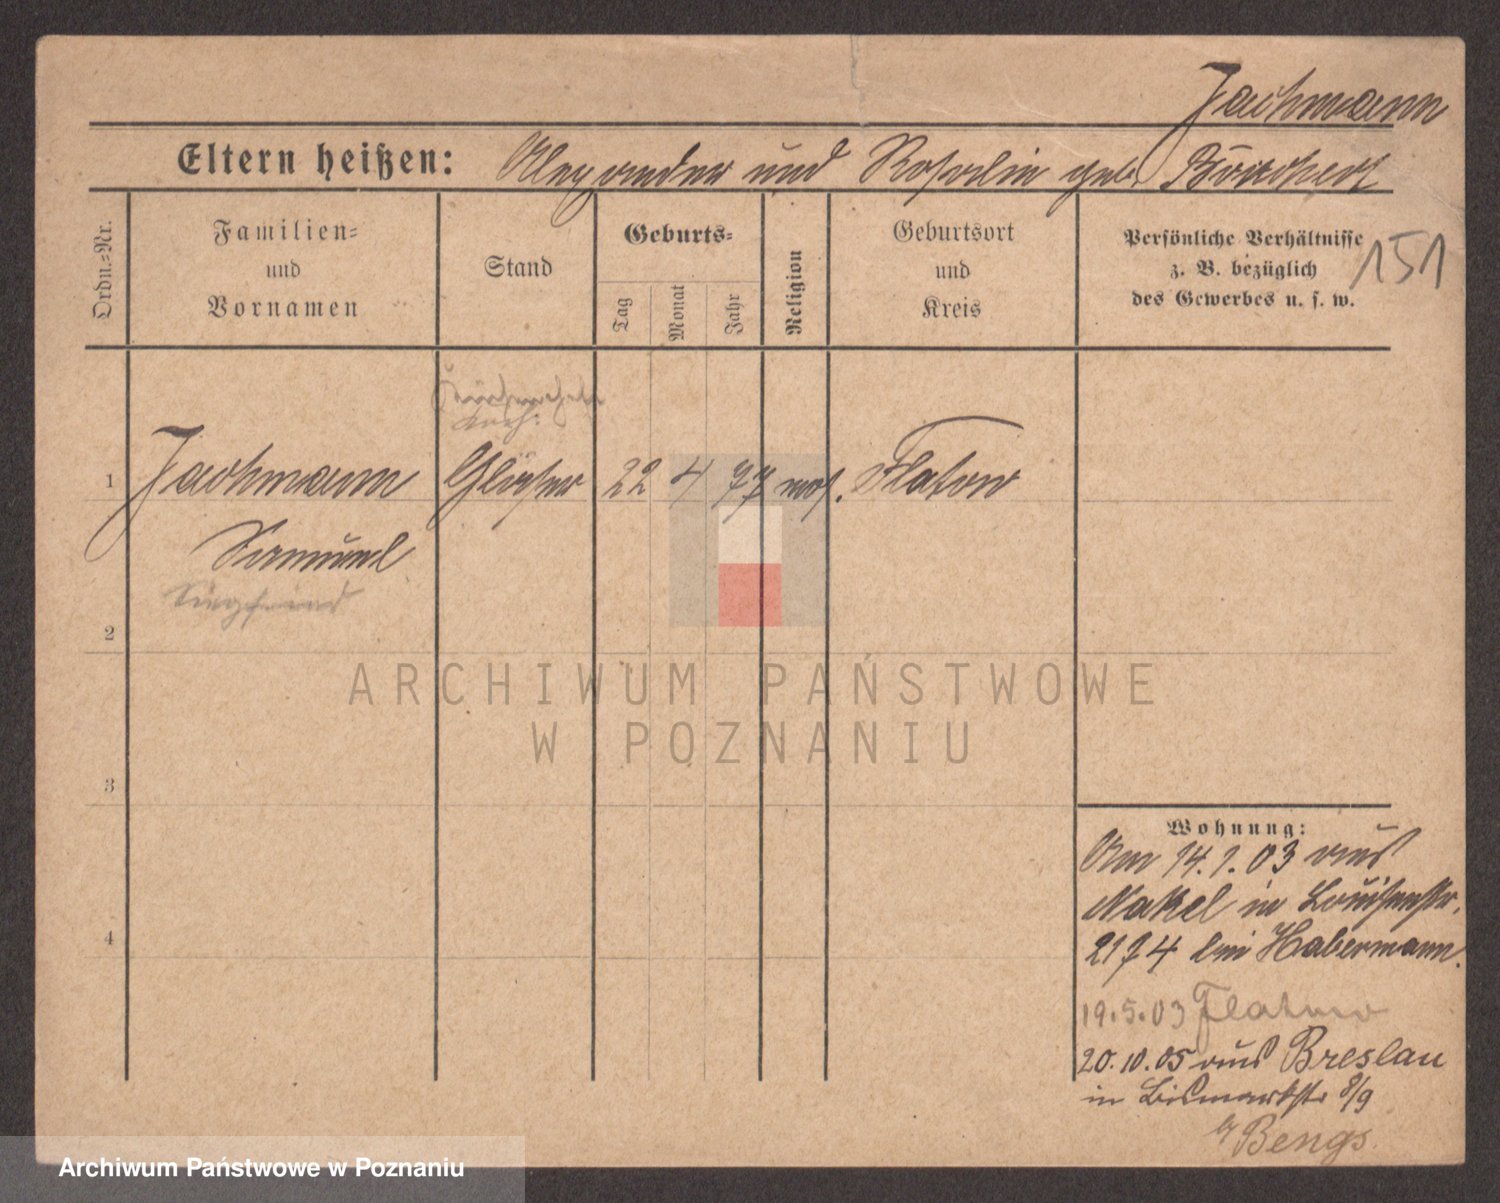 Jachmann
Eltern heißen: Alexander und Rosalie geb. Borchert
151
Ordn.-Nr.
Familien-
und
Vornamen
Stand
Geburts-
Tag
Monat
Jahr
Religion
Geburtsort
und
Kreis
Persönliche Verhältnisse
z. B. bezüglich
des Gewerbes u. s. w.
1 Jachmann Glaser 22 4 77 mos. Flatow
Samuel
Siegfried
2
3
4
ARCHIWUM PAŃSTWOWE
W POZNANIU
Wohnung:
Am 14.1.03 aus
Nakel in Louisenstr.
2174 bei Habermann.
19.5.03 Flatow
20.10.05 aus Breslau
in Bismarkstr 8/9
b/ Bengs
Archiwum Państwowe w Poznaniu